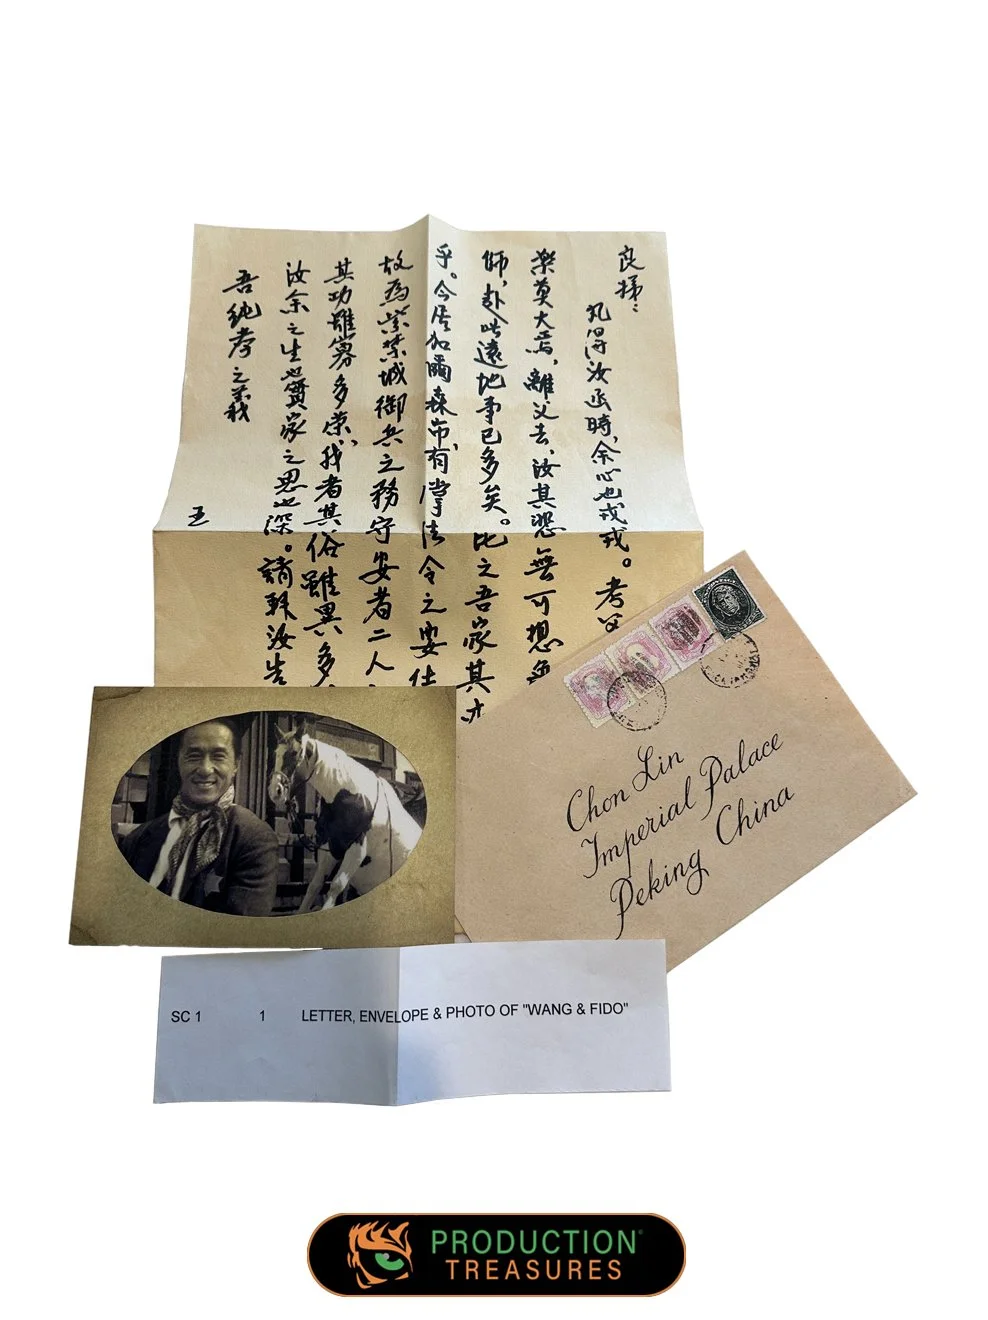 良
得汝函時,余心也戎戎。考父
樂莫大焉,離父去,汝其怨無可想
師,赴此遠地事已多矣。比之吾家其才
乎。今居加爾森市,有掌法令之安仕
故為紫禁城御兵之務守安者二人
其功雖寡多榮,我者其俗雖異多
汝余之生也實家之恩也深。請汝告
吾純孝之義
王
Chon Lin
Imperial Palace
Peking China
SC 1 1 LETTER, ENVELOPE & PHOTO OF "WANG & FIDO"
PRODUCTION
TREASURES